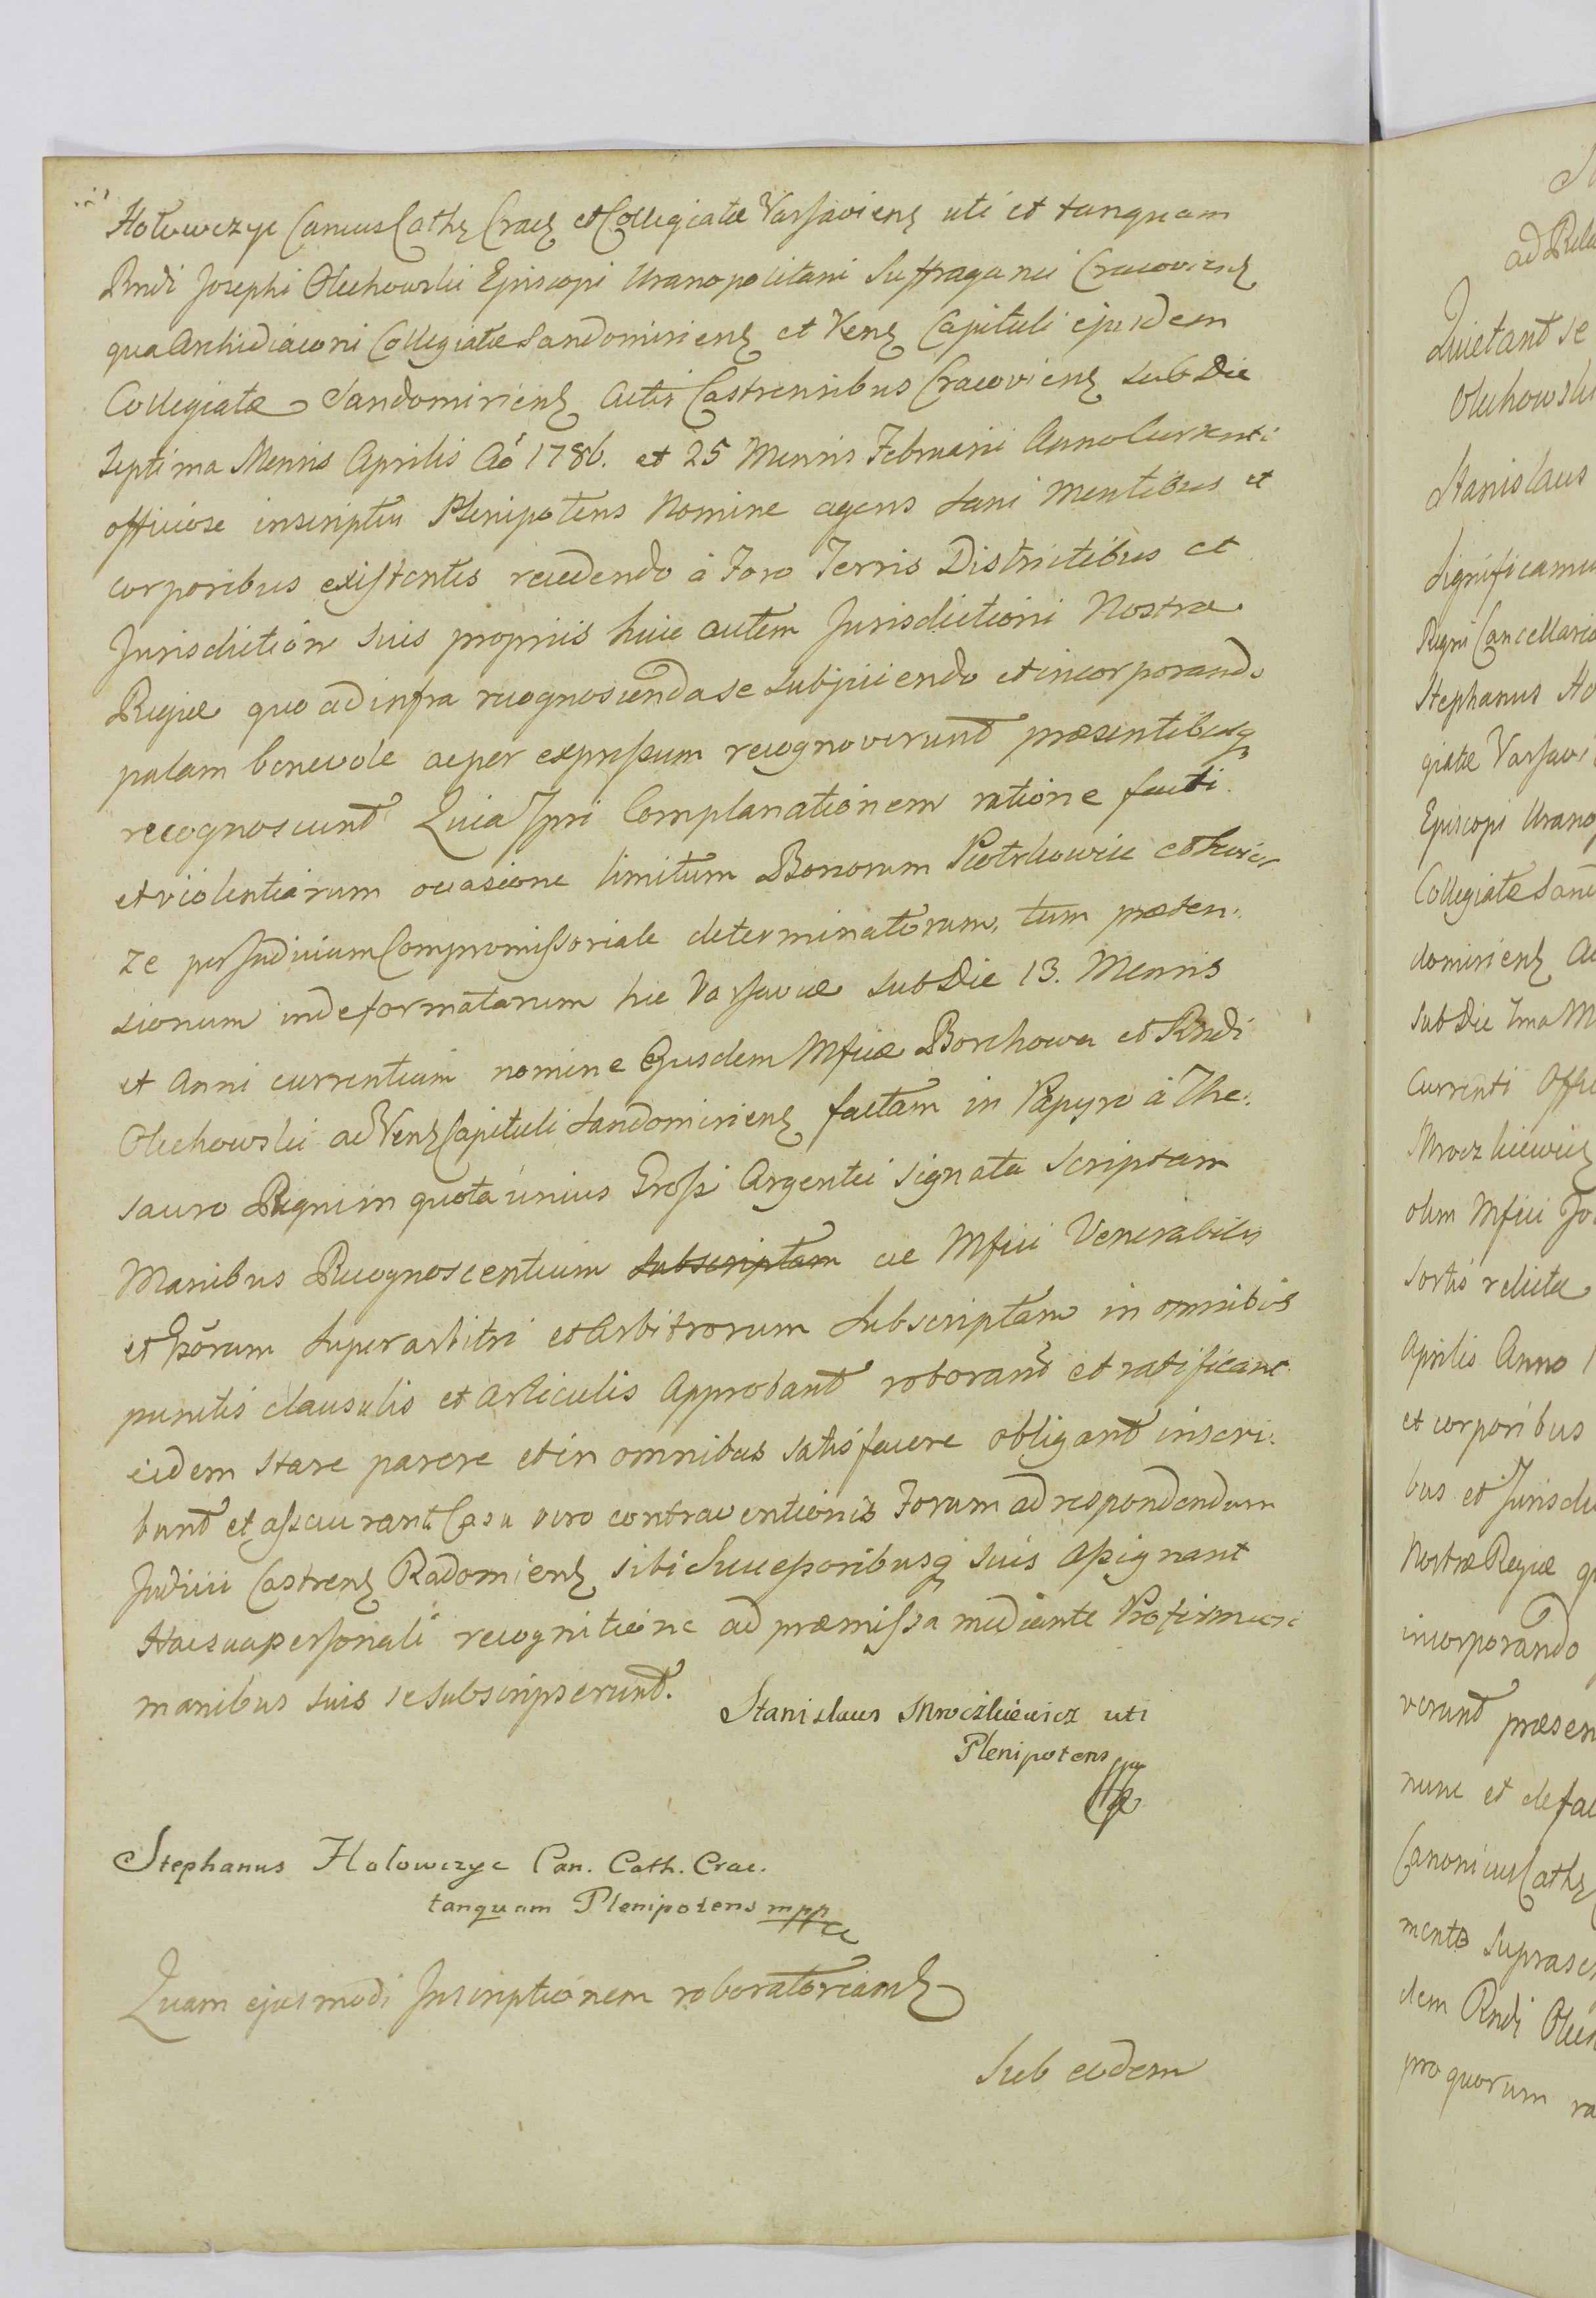 Hołowczyc Canus Cath Crac et Collegiatæ Varsaviens uti et tanquam
Rndi Josephi Olechowski Episcopi Uranopolitani Suffraganei Cracoviens
qua Archidiaconi Collegiatæ Sandomiriens et Vens Capituli ejusdem
Collegiatæ Sandomiriens Actis Castrensibus Cracoviens sub Die
Septima Mensis Aprilis Aô 1786. et 25 Mensis Februarii Anno Currenti
officiose inscriptus Plenipotens Nomine agens Sani Mentibus et
corporibus existentes recedendo à Foro Terris Districtibus et
Jurisdictione suis propriis huic autem Jurisdictioni Nostræ
Regiæ quo ad infra recognoscenda se subjiciendo et incorporando
palam benevole ac per expressum recognoverunt præsentibusq
recognoscunt Quia Ipsi Complanationem ratione facti
et violentiarum occasione limitum Bonorum Piotrkowice et
ze per Judicium Compromissoriale determinatorum, tum præten:
sionum inde formatarum hic Varsaviæ sub Die 13. Mensis
et Anni currentium nomine Ejusdem Mficæ Borchowa et Rndi
Olechowski ac Vens Capituli Sandomiriens factam in Papyro à The:
sauro Regni in quota unius Grossi Argentei signata scriptam
Manibus Recognoscentium subscriptam ac Mfici Venerabilis
et Gsôrum Superarbitri et Arbitrorum Subscriptam in omnibus
punctis clausulis et articulis Approbant roborant et ratificant
eidem stare parere et in omnibus satisfacere obligant inscri:
bunt et assecurant Casu vero contraventionis Forum ad respondendum
Judicii Castrens Radomiens sibi Successoribusq suis assignant
Hac sua personali recognitione ad præmissa mediante Pro firmiori
manibus suis se subscripserunt.
Stanislaus Mroczkiewicz uti
Plenipotens
Stephanus Hołowczyc Can. Cath. Crac.
tanquam Plenipotens mpp
Quam ejusmodi Inscriptionem roboratoriam
Sub eodem
ad Rela
Quietant se
Olechowski
Stanislaus
Significamus
Regni Cancellaria
Stephanus Ho
giatæ Varsavi
Episcopi Urano
Collegiatæ San
domiriens Ac
sub Die 7ma M
Currenti Offi
Mroczkiewicz
olim Mfici Jo
sortis relicta
Aprilis Anno 1
et corporibus
bus et Jurisdi
Nostræ Regiæ q
incorporando
verunt præsen
nunc et de fac
Canonicus Cath
mento suprasc
dem Rndi Olech
pro quorum ra